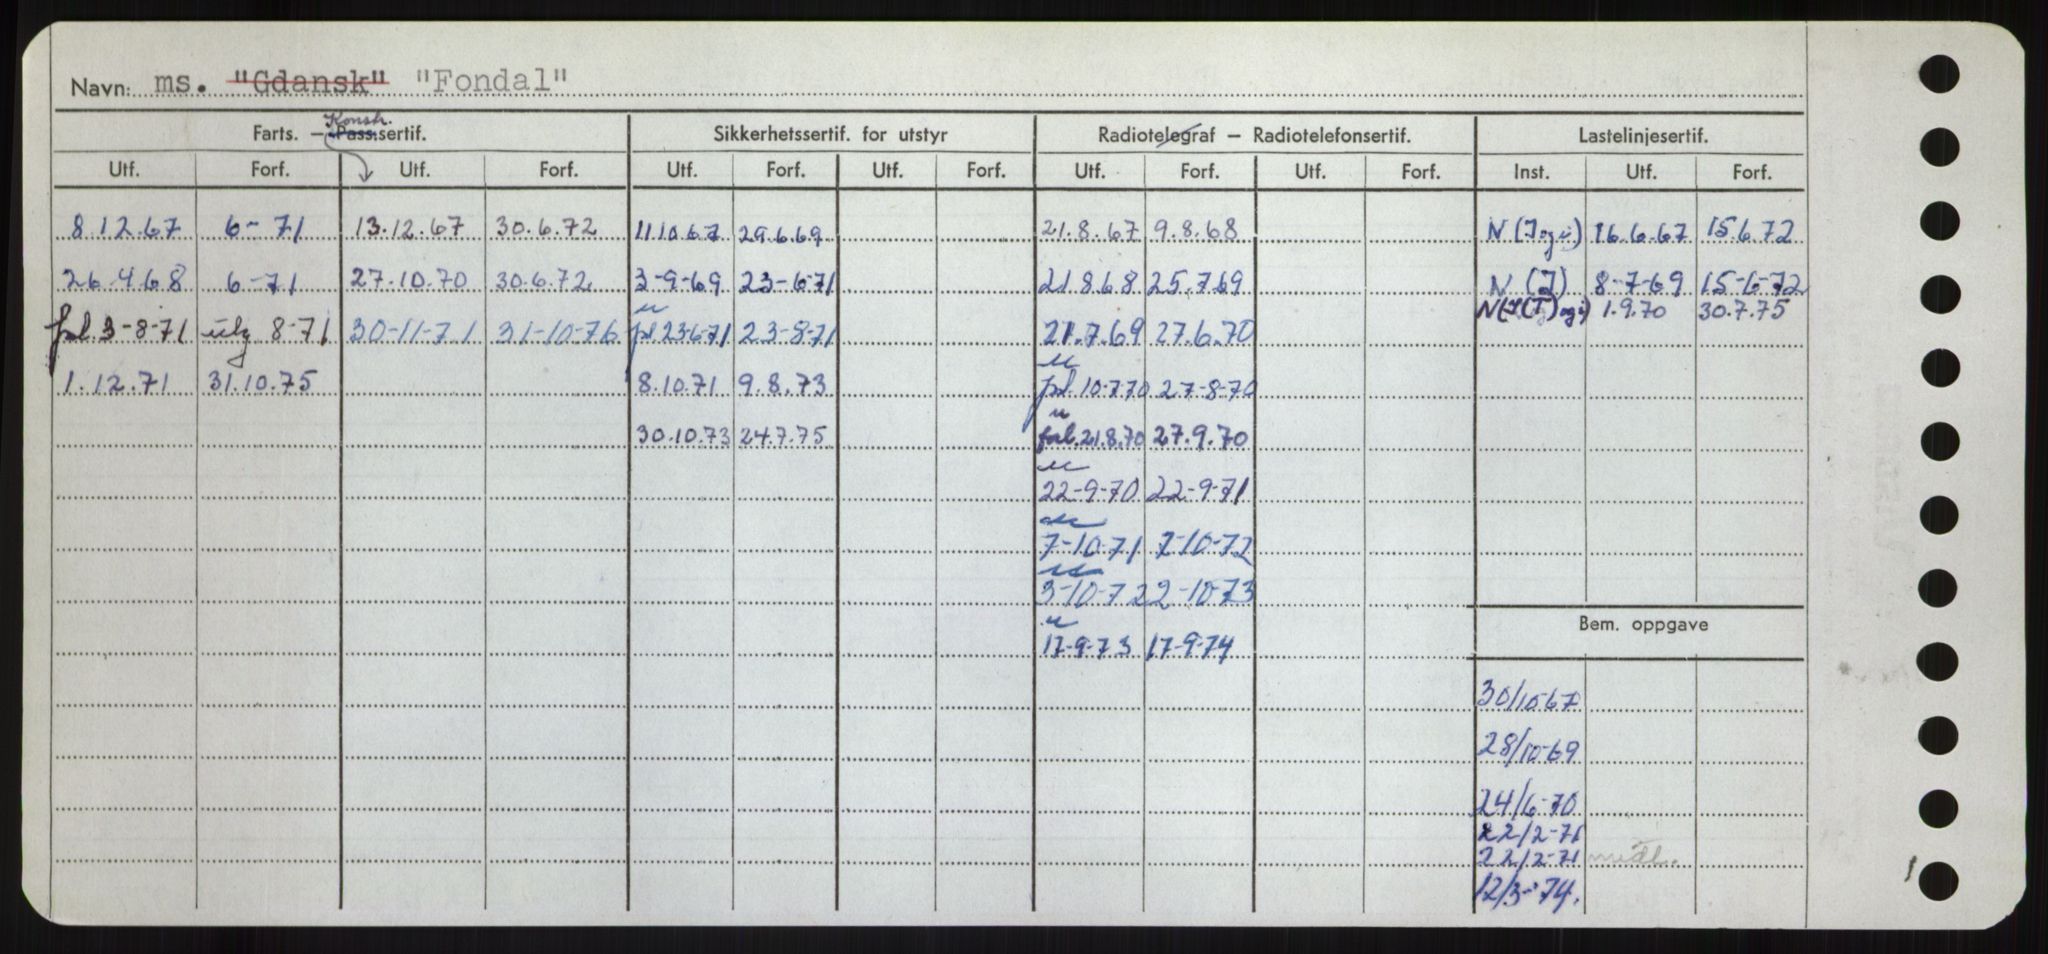 Navn: ms. "Gdansk" "Fondal"
Konstr.
Farts. — Pass.sertif. Sikkerhetssertif. for utstyr Radiotelegraf — Radiotelefonsertif. Lastelinjesertif.
Utf. Forf. Utf. Forf. Utf. Forf. Utf. Forf. Utf. Forf. Utf. Forf. Inst. Utf. Forf.
8.12.67 6-71 13.12.67 30.6.72 11.10.67 29.6.69 21.8.67 9.8.68 N (J og i) 16.6.67 15.6.72
26.4.68 6-71 27.10.70 30.6.72 3-9-69 23-6-71 21.8.68 25.7.69 N (J) 8-7-69 15-6-72
N(J(T) og i) 1.9.70 30.7.75
3-8-71 8-71 30-11-71 31-10-76 23-6-71 23-8-71 21.7.69 27.6.70
1.12.71 31.10.75 8.10.71 9.8.73 10-7-70 27-8-70
30.10.73 24.7.75 forl. 21.8.70 27.9.70
22-9-70 22-9-71
7-10-71 7-10-72
3-10-72 2-10-73
Bem. oppgave
17-9-73 17-9-74
30/10-67
28/10-69
24/6-70
22/2-71
22/2-71 midl.
12/3-74.